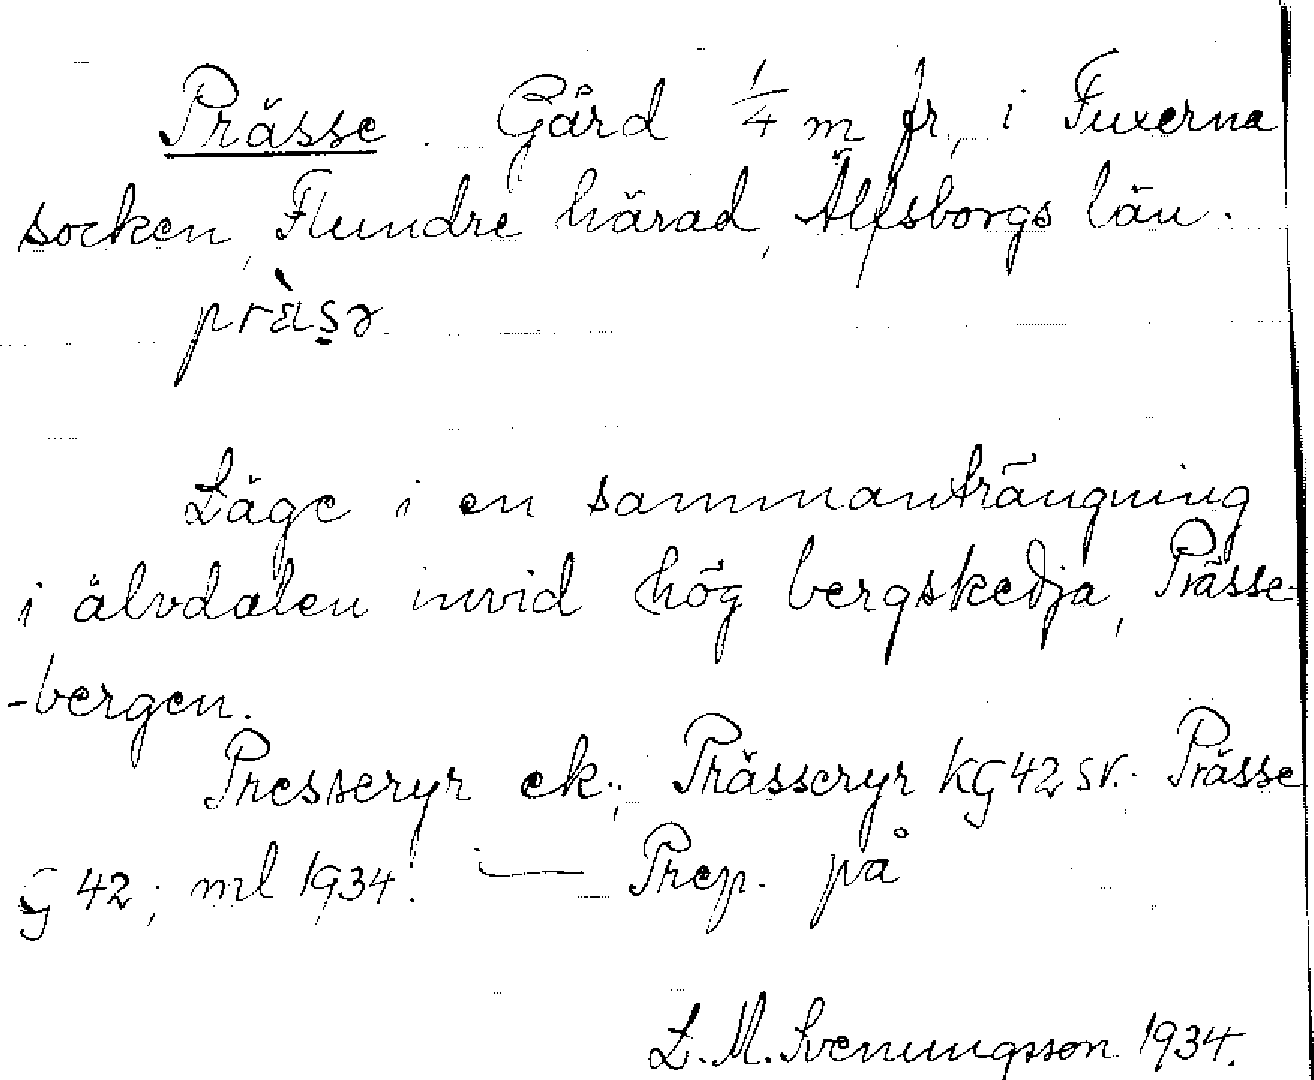 Prässe. Gård 1/4 m fr. i Fuxerna
socken, Flundre härad, Älfsborgs län.
prὰsə
Läge i en sammanträngning
i älvdalen invid hög bergskedja, Prässe-
-bergen.
Presseryr ek.; Prässeryr KG 42 sv. Prässe
G 42; ml 1934. — Prep. på
L. M. Svenungsson 1934.